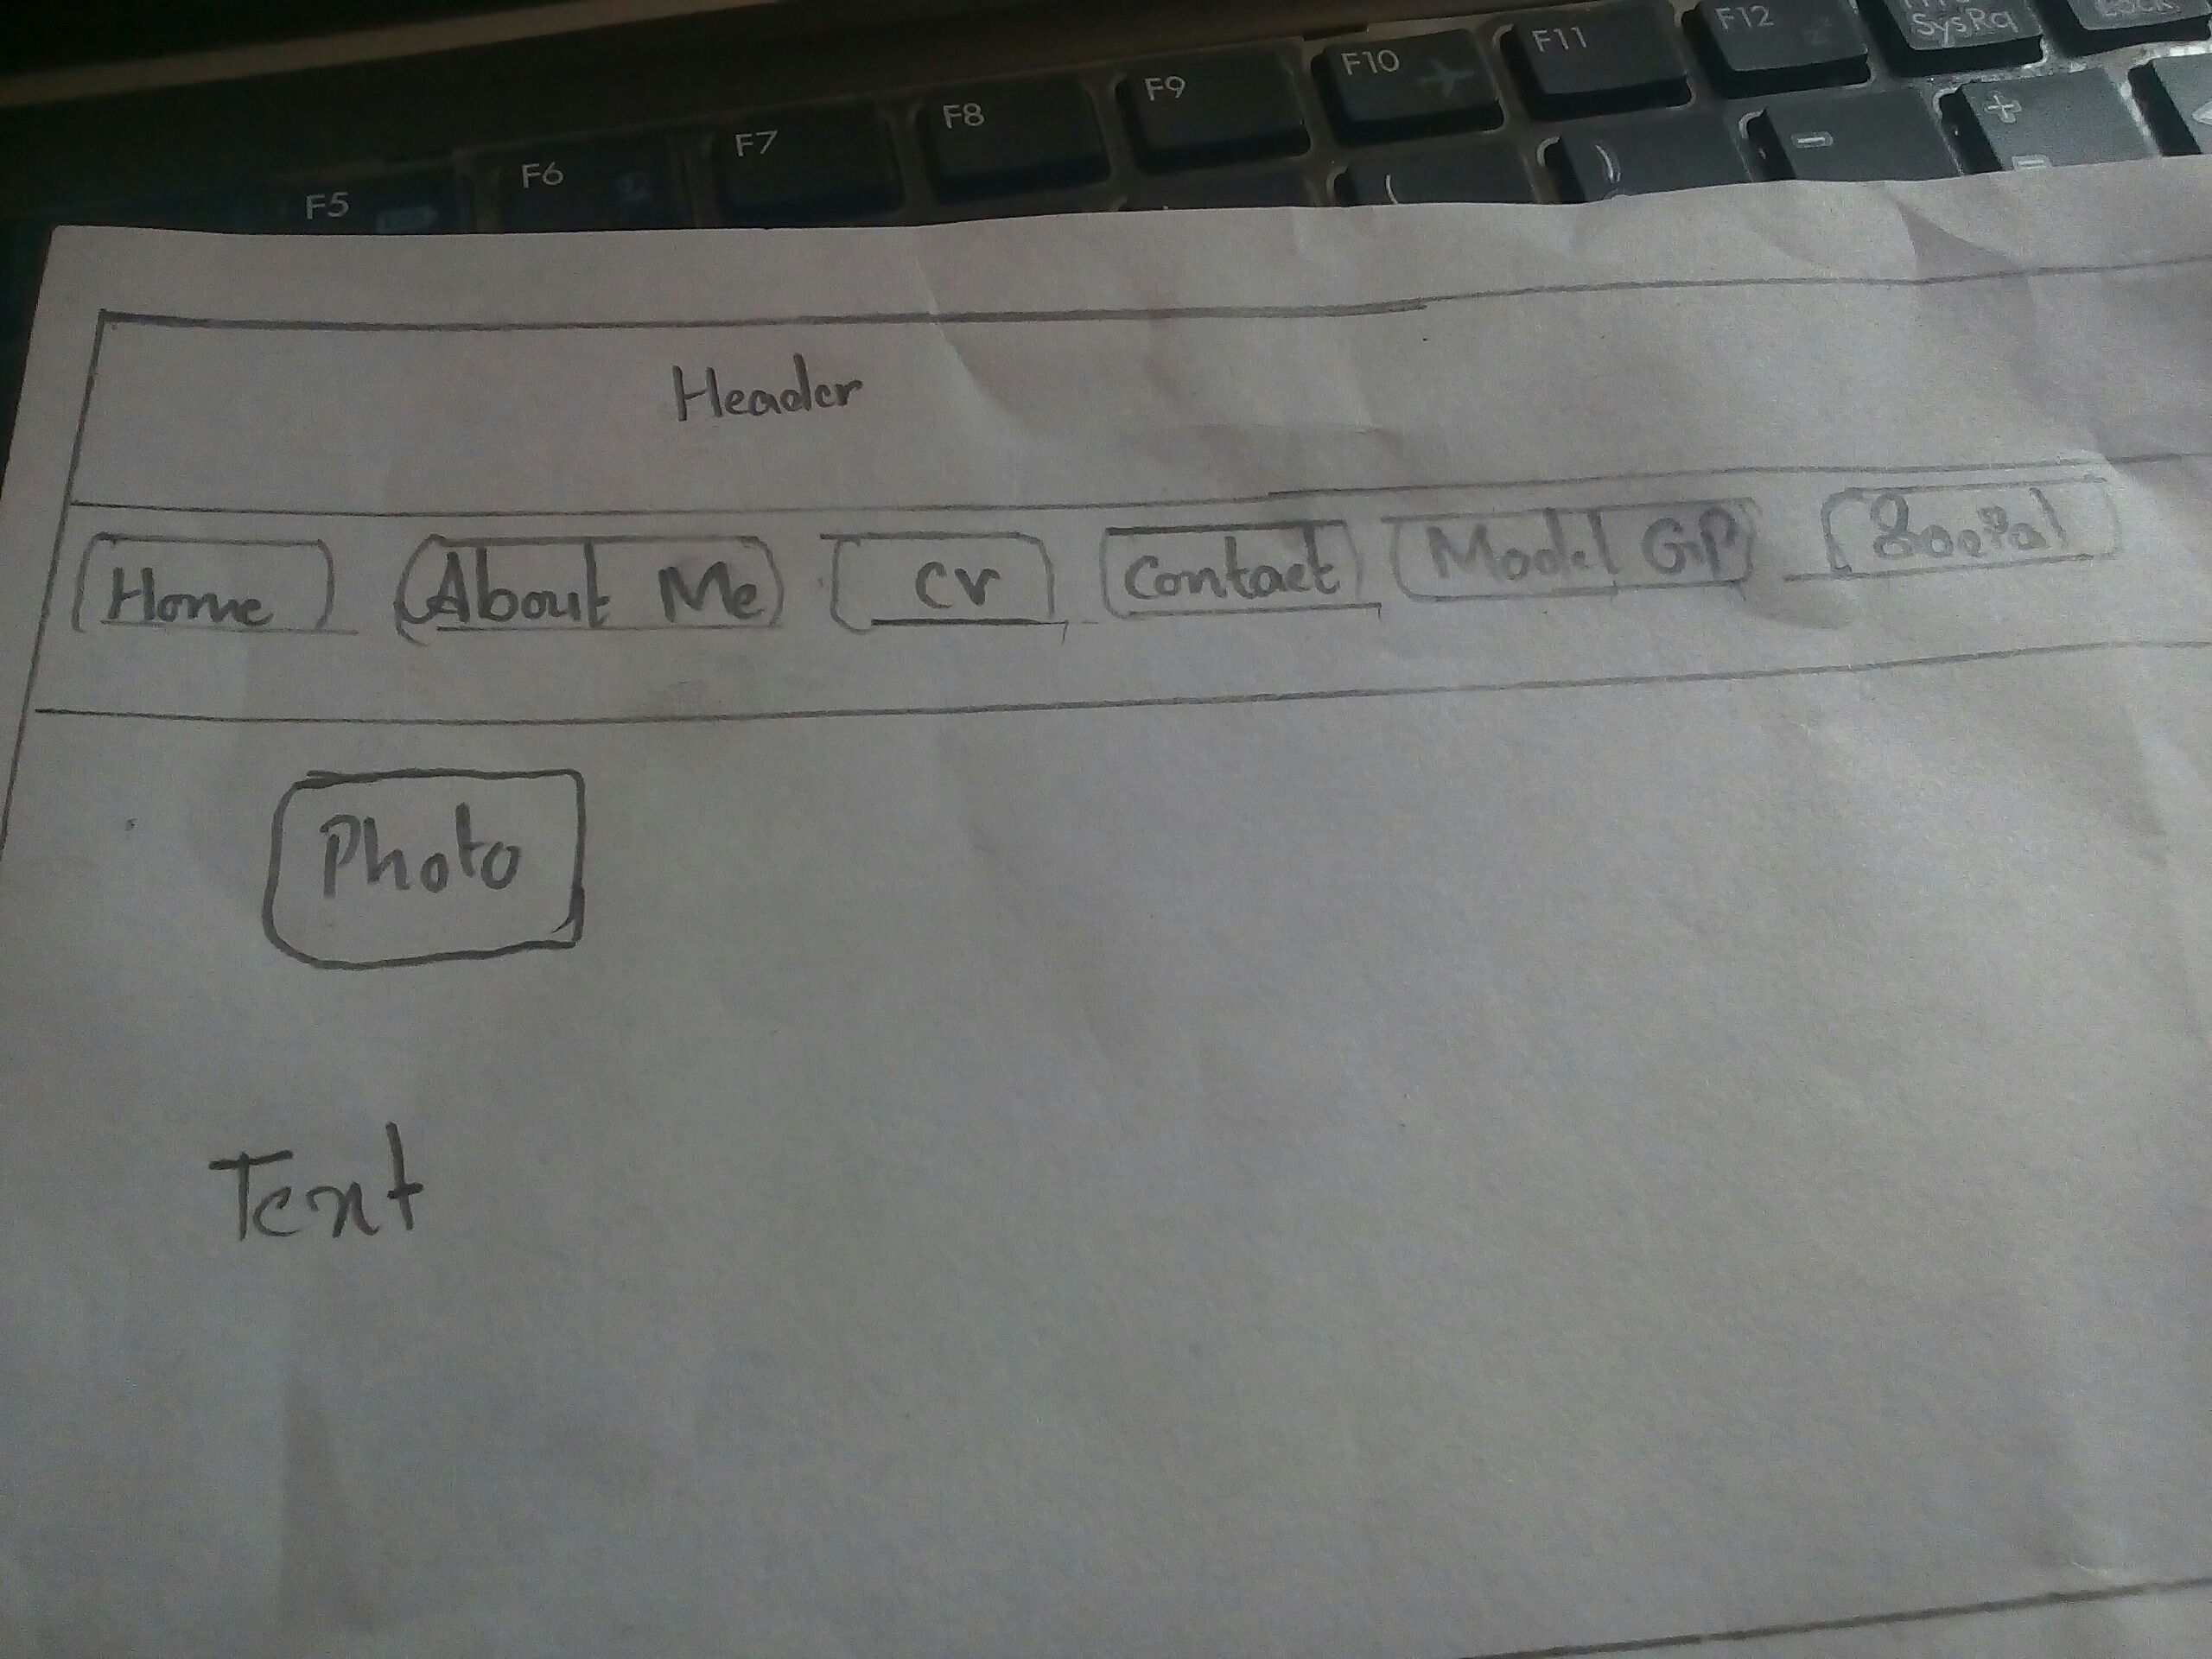 F5 F6 F7 F8 F9 F10 F11 F12
SysRq
( ) - + =
Header
Home About Me CV Contact Model GP Social
Photo
Text